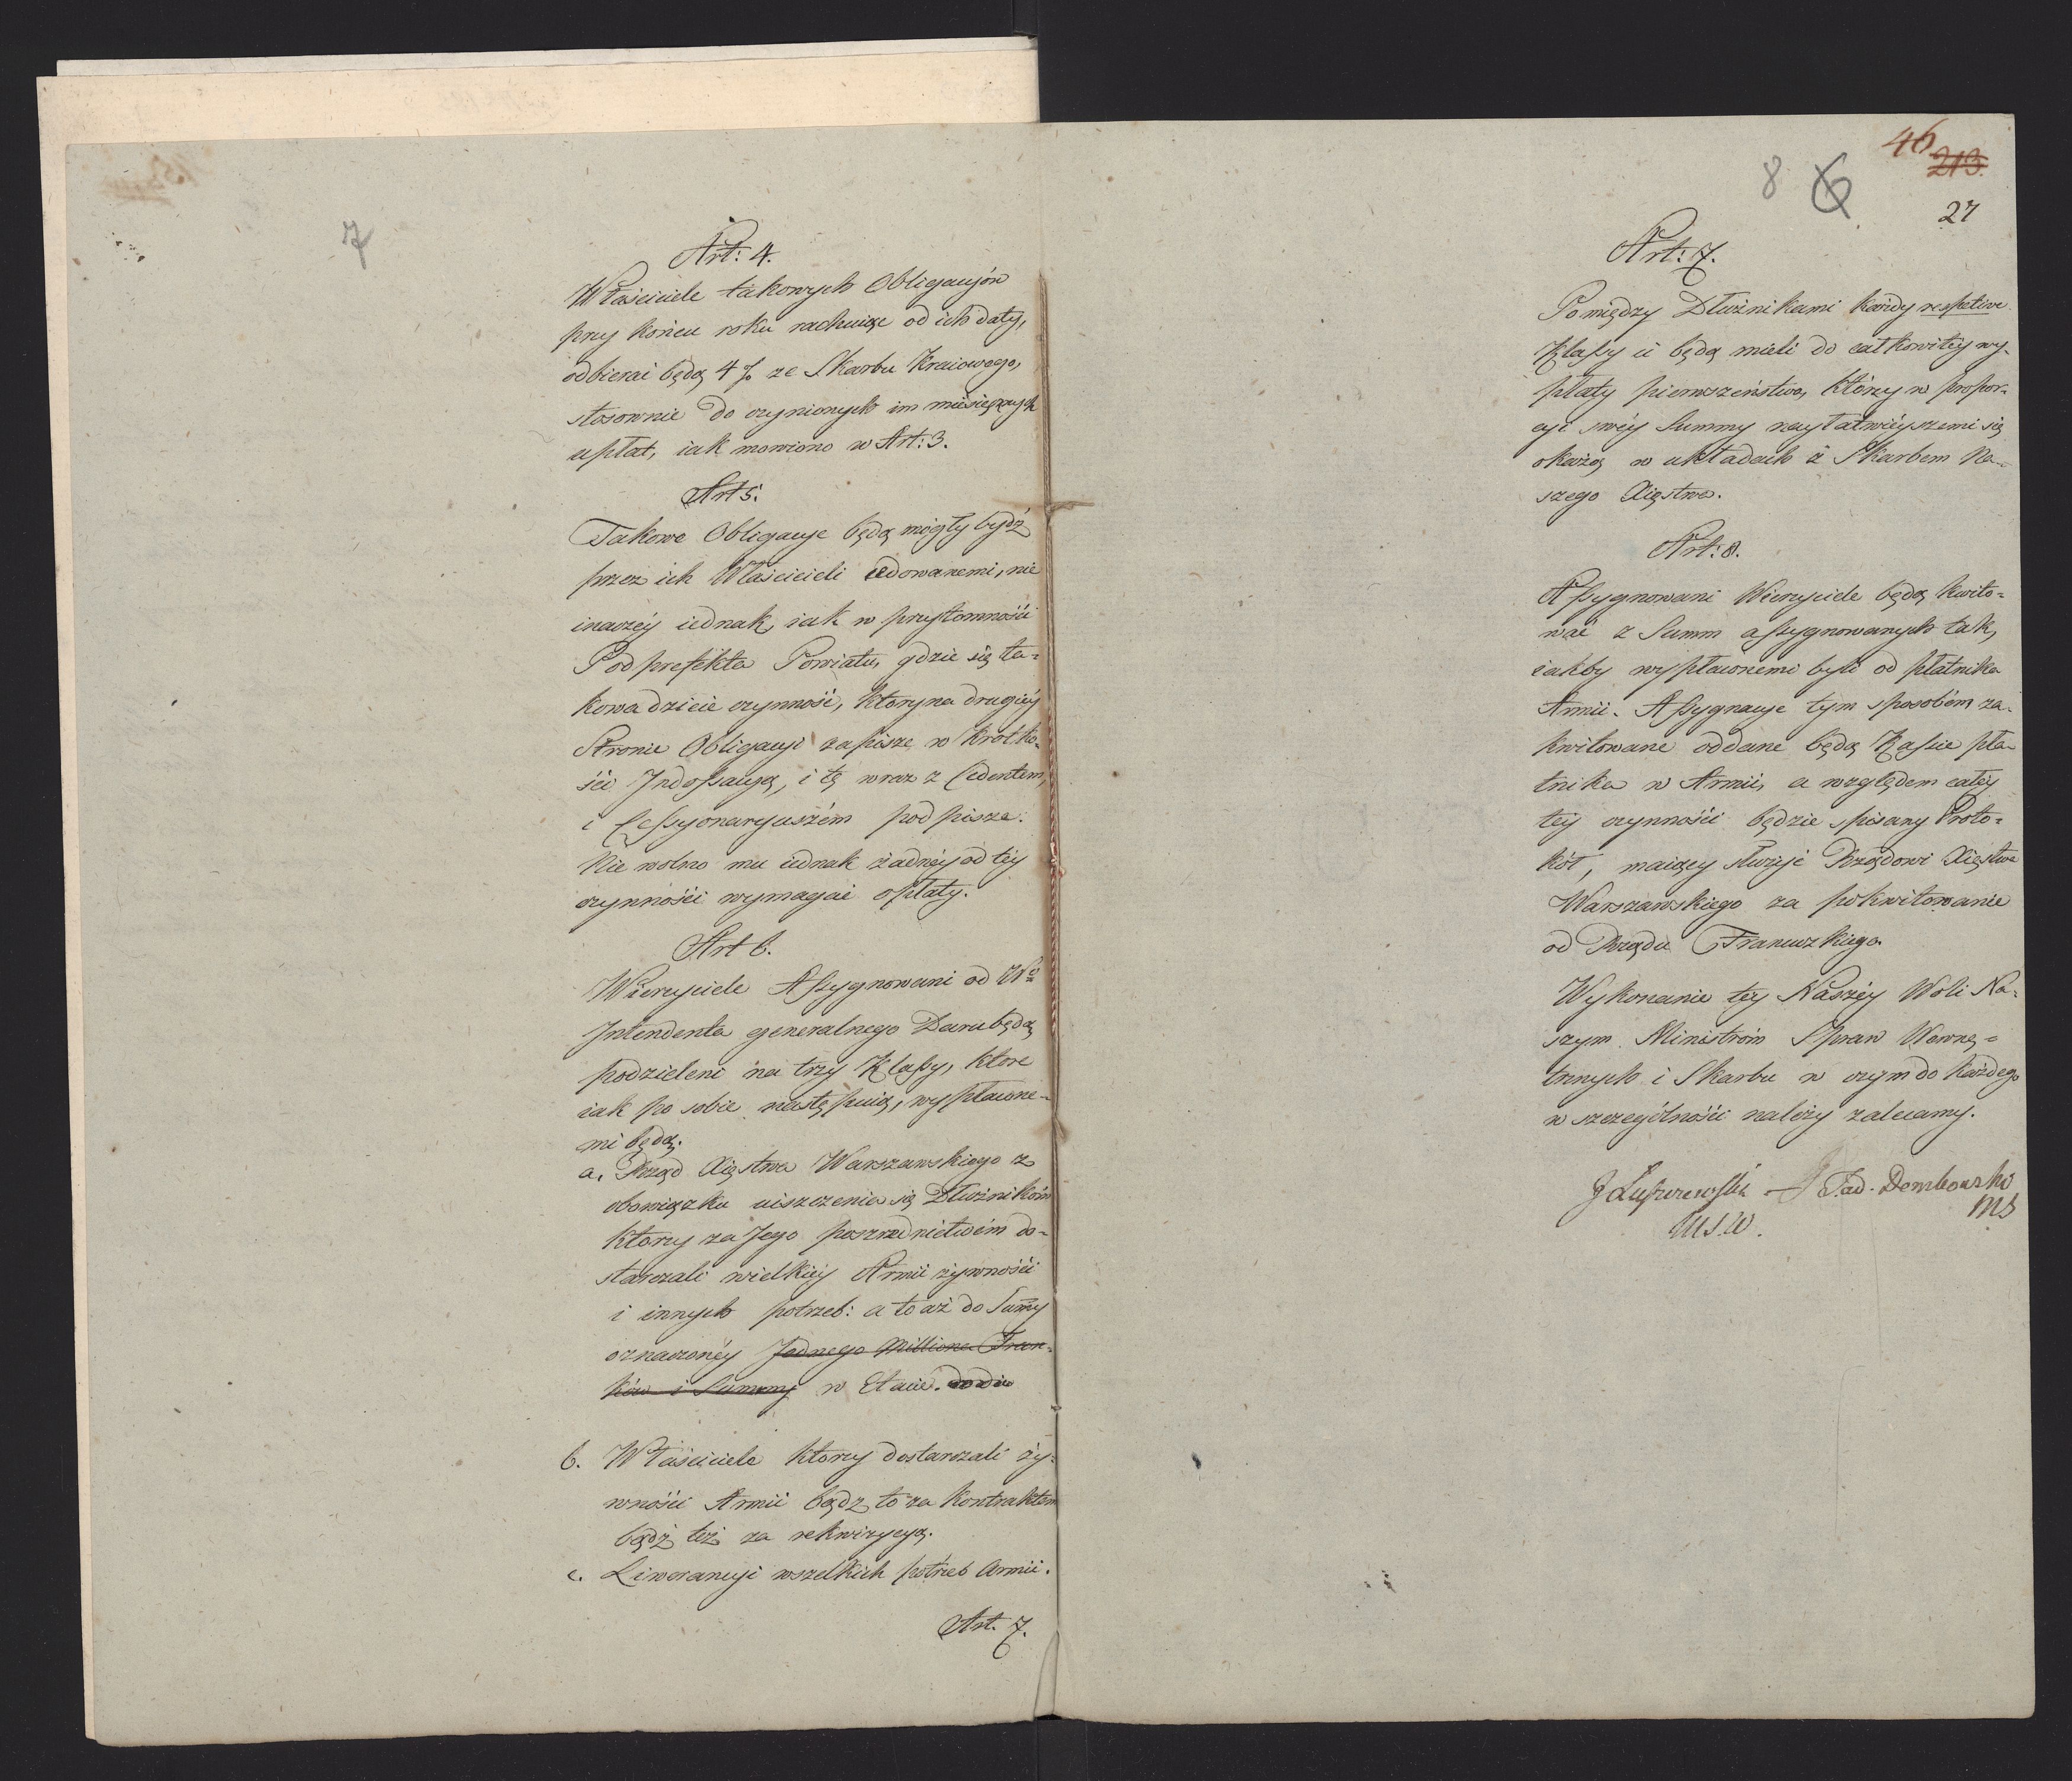 7
Art: 4.
Właściciele takowych Obligacyów
przy końcu roku rachuiąc od ich daty,
odbierać będą 4 p. ze Skarbu Kraiowego,
stosownie do czynionych im miesięcznych
upłat, iak mowiono w Art: 3.
Art 5.
Takowe Obligacye będą mogły bydź
przez ich Właścicieli cedowanemi, nie
inaczéy iednak, iak w przytomności
Podprefekta Powiatu, gdzie się ta-
kowa dzieie czynność, który na drugiéy
Stronie Obligacyi zapisze w krotko-
ści Indossacyą, i tę wraz z Cedentem,
i Cessyonaryuszém podpisze.
Nie wolno mu iednak żadnéy od téy
czynności wymagać opłaty.
Art 6.
Wierzyciele Assygnowani od W°
Intendenta generalnego Daru będą
podzieleni na trzy Klassy, ktore
iak po sobie następuią, wypłacone-
mi będą.
a. Rząd Xięstwa Warszawskiego z
obowiązku uiszczenia się Dłużnikóm
ktorzy za Jego poszrednictwém do-
starczali wielkiéy Armii żywności
i innych potrzeb: a to aż do Summy
oznaczonéy Jednego Milliona Fran-
ków i Summy w Etacie.
b. Właściciele ktorzy dostarczali ży-
wności Armii bądz to za Kontraktem
bądź też za rekwizycyą.
c. Liweranci wszelkich potrzeb Armii.
Art. 7.
46
213.
8 6
27
Art: 7.
Pomiędzy Dłużnikami każdy respective
Klassy ci będą mieli do całkowitey wy-
płaty pierwszeństwo, którzy w propor-
cyi swéy Summy nayłatwiéyszemi się
okażą w układach z Skarbem Na-
szego Xięstwa.
Art: 8.
Assygnowani Wierzyciele będą kwito-
wać z Summ assygnowanych tak,
iakby wypłaconemi byli od płatnika
Armii. Assygnacye tym sposobém za-
kwitowane oddane będą Kassie pła-
tnika w Armii, a względem całéy
téy czynności będzie spisany Proto-
kół, maiący służyć Rządowi Xięstwa
Warszawskiego za pokwitowanie
od Rządu Francuzkiego.
Wykonanie téy Naszéy Woli Na-
szym Ministróm Spraw Wewnę-
trznych i Skarbu w czym do każdego
w szczególności należy zalecamy.
J Łuszczewski Tad. Dembowski
MS
M.S.W.